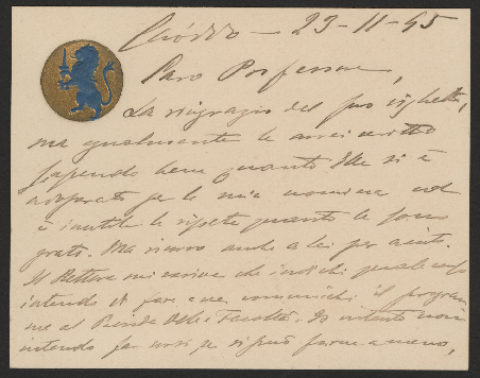 23-11-95
Caro Professore,
La ringrazio del suo biglietto,
ma ugualmente le
sapendo bene quanto Ella si è
adoperato per la mia nomina ed
è inutile le ripeta quanto le sono
grato. Ma ricorro anche a lei per aiuto.
Il Rettore mi scrive che indichi quale corso
intendo di fare e ne comunichi il program
ma al Preside della Facoltà. Io intanto non
intendo far corsi se si può farne a meno,